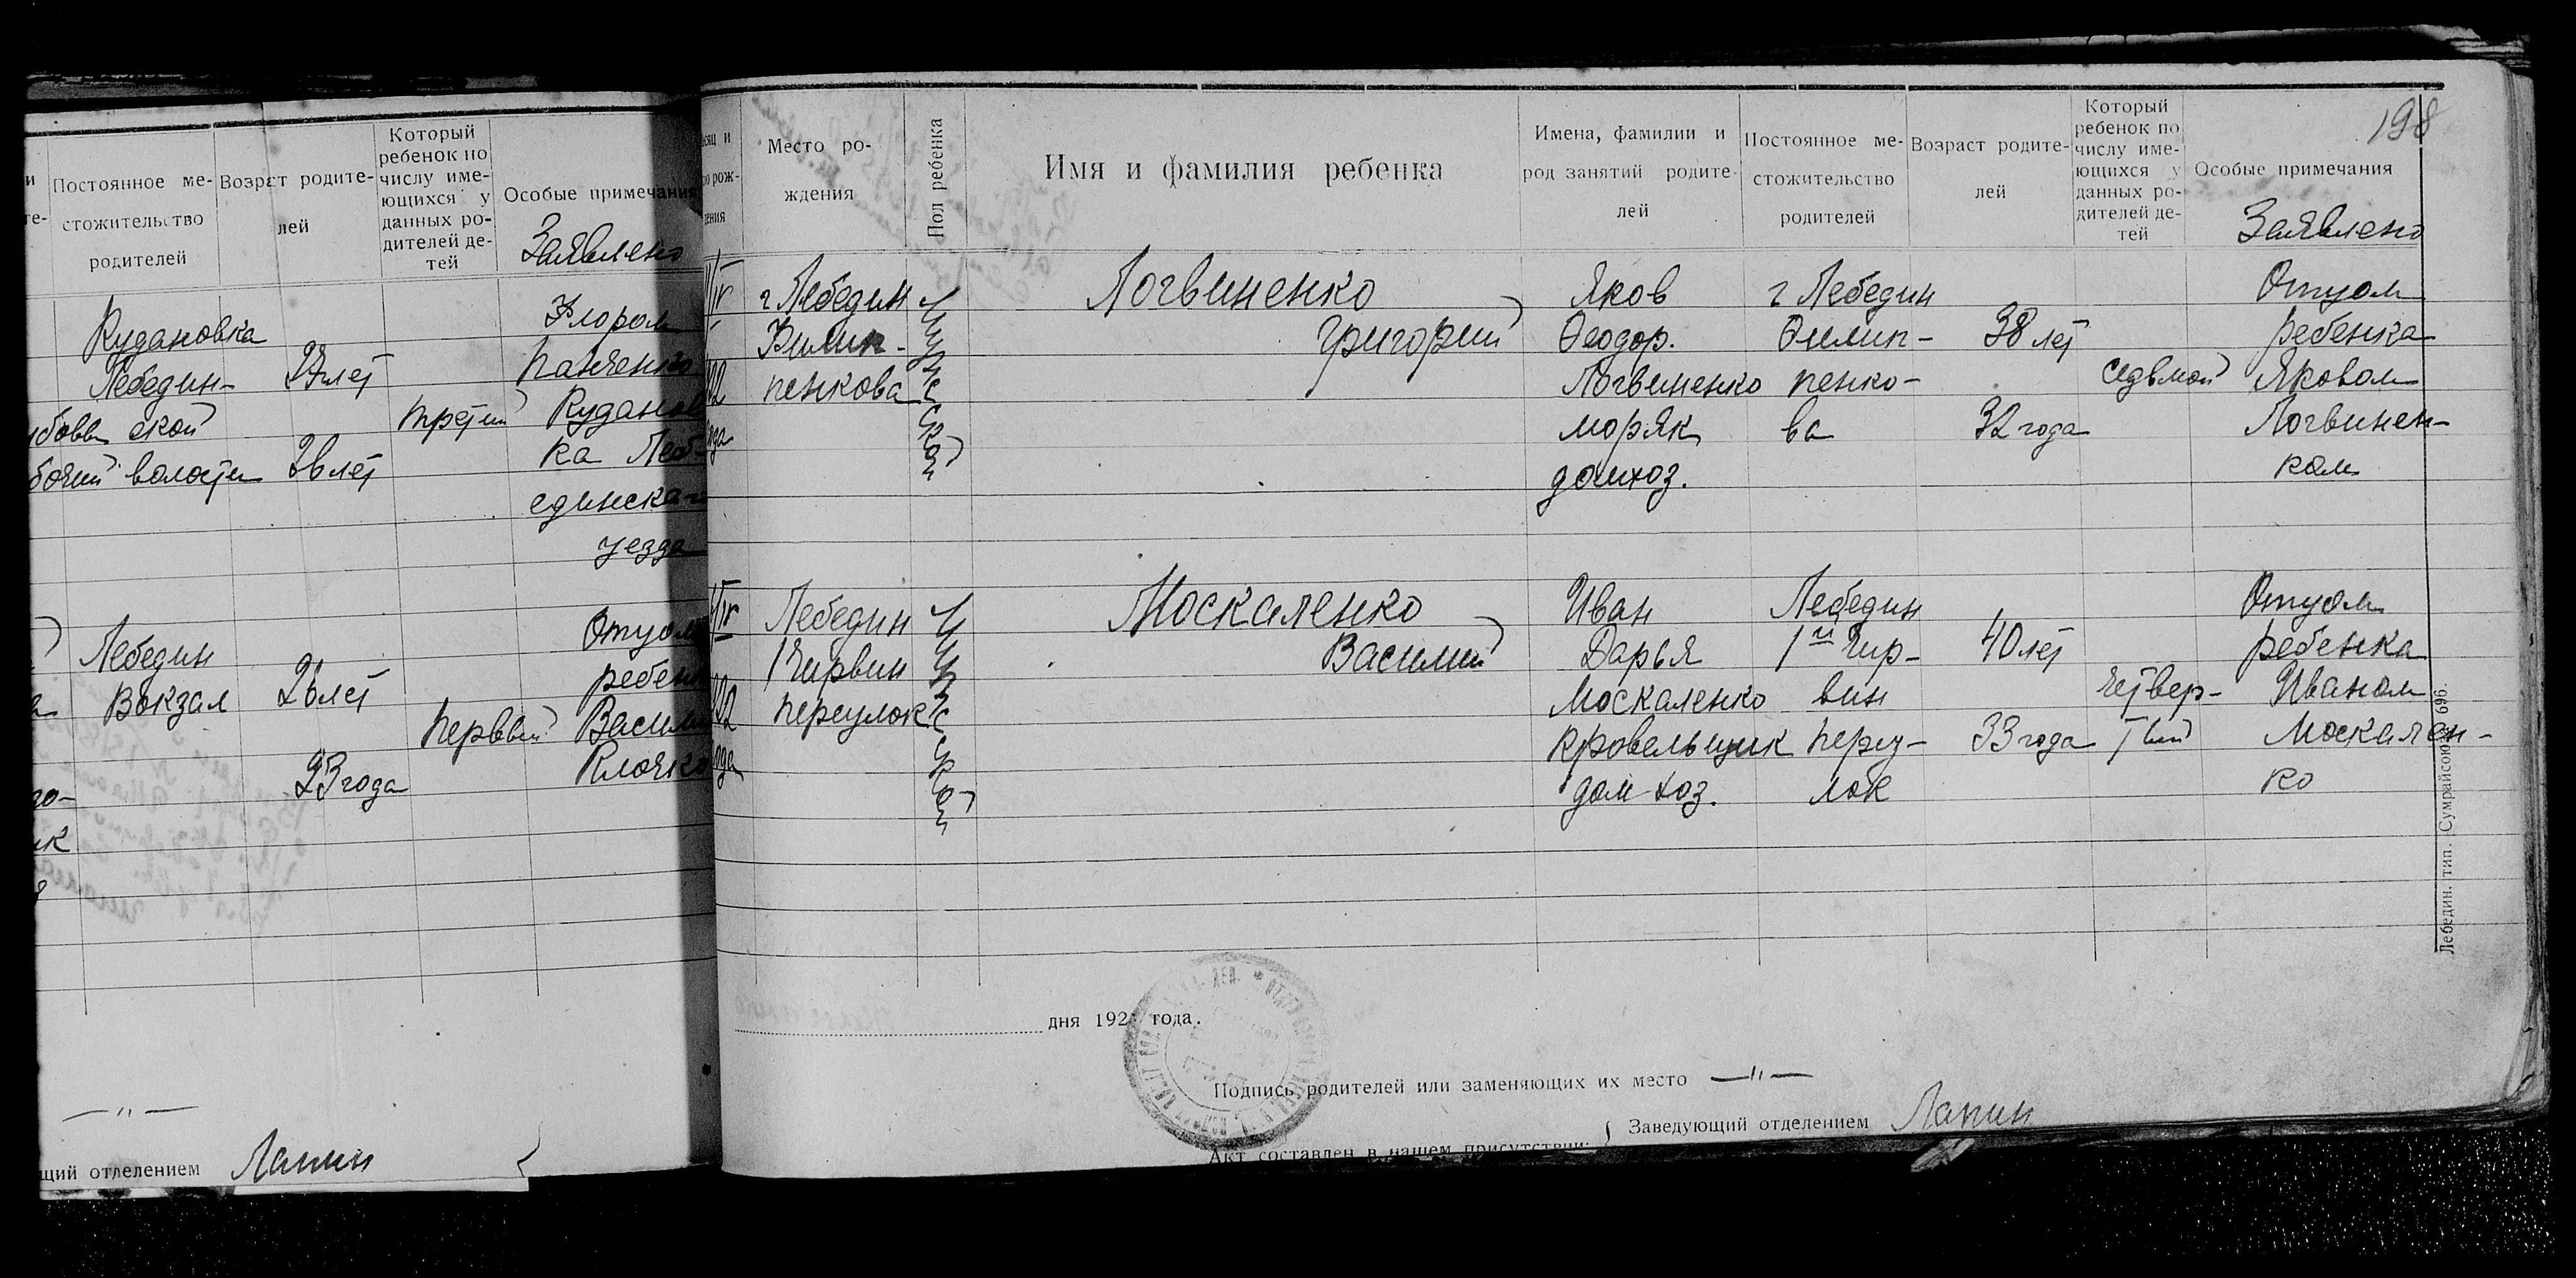 Постоянное ме-
стожительство
родителей
Возраст родите-
лей
Который
ребенок по
числу име-
ющихся у
данных ро-
дителей де-
тей
Особые примечания
Заявлено
Кудановка
Лебедин-
ской
волости
27 лет
26 лет
третий
Панченко
Куданов
ка Леб-
единска
уезда
Лебедин
Вокзал
26 лет
23 года
первый
Отцом
ребен
Васили
Клочко
—"—
щий отделением Лапин
198
Место ро-
ждения
Пол ребенка
Имя и фамилия ребенка
Имена, фамилии и
род занятий родите-
лей
Постоянное ме-
стожительство
родителей
Возраст родите-
лей
Который
ребенок по
числу име-
ющихся у
данных ро-
дителей де-
тей
Особые примечания
Заявлено
г Лебедин
Филип-
пенкова
Мужской
Логвиненко
Григорий
Яков
Феодор.
Логвиненко
моряк
домхоз.
г Лебедин
Филип-
пенко-
ва
38 лет
32 года
седьмой
Отцом
ребенка
Яковом
Логвинен-
ком
Лебедин
1 Чирвин
переулок
Мужской
Москаленко
Василий
Иван
Дарья
Москаленко
кровельщик
дом хоз.
Лебедин
1й Чир-
вин
переу-
лок
40 лет
33 года
четвер-
тый
Отцом
ребенка
Иваном
Москален-
ко
дня 192 года.
Подпись родителей или заменяющих их место —"—
Заведующий отделением Лапин
Акт составлен в нашем присутствии:
Лебедин. тип. Сумрайсоюз 696.